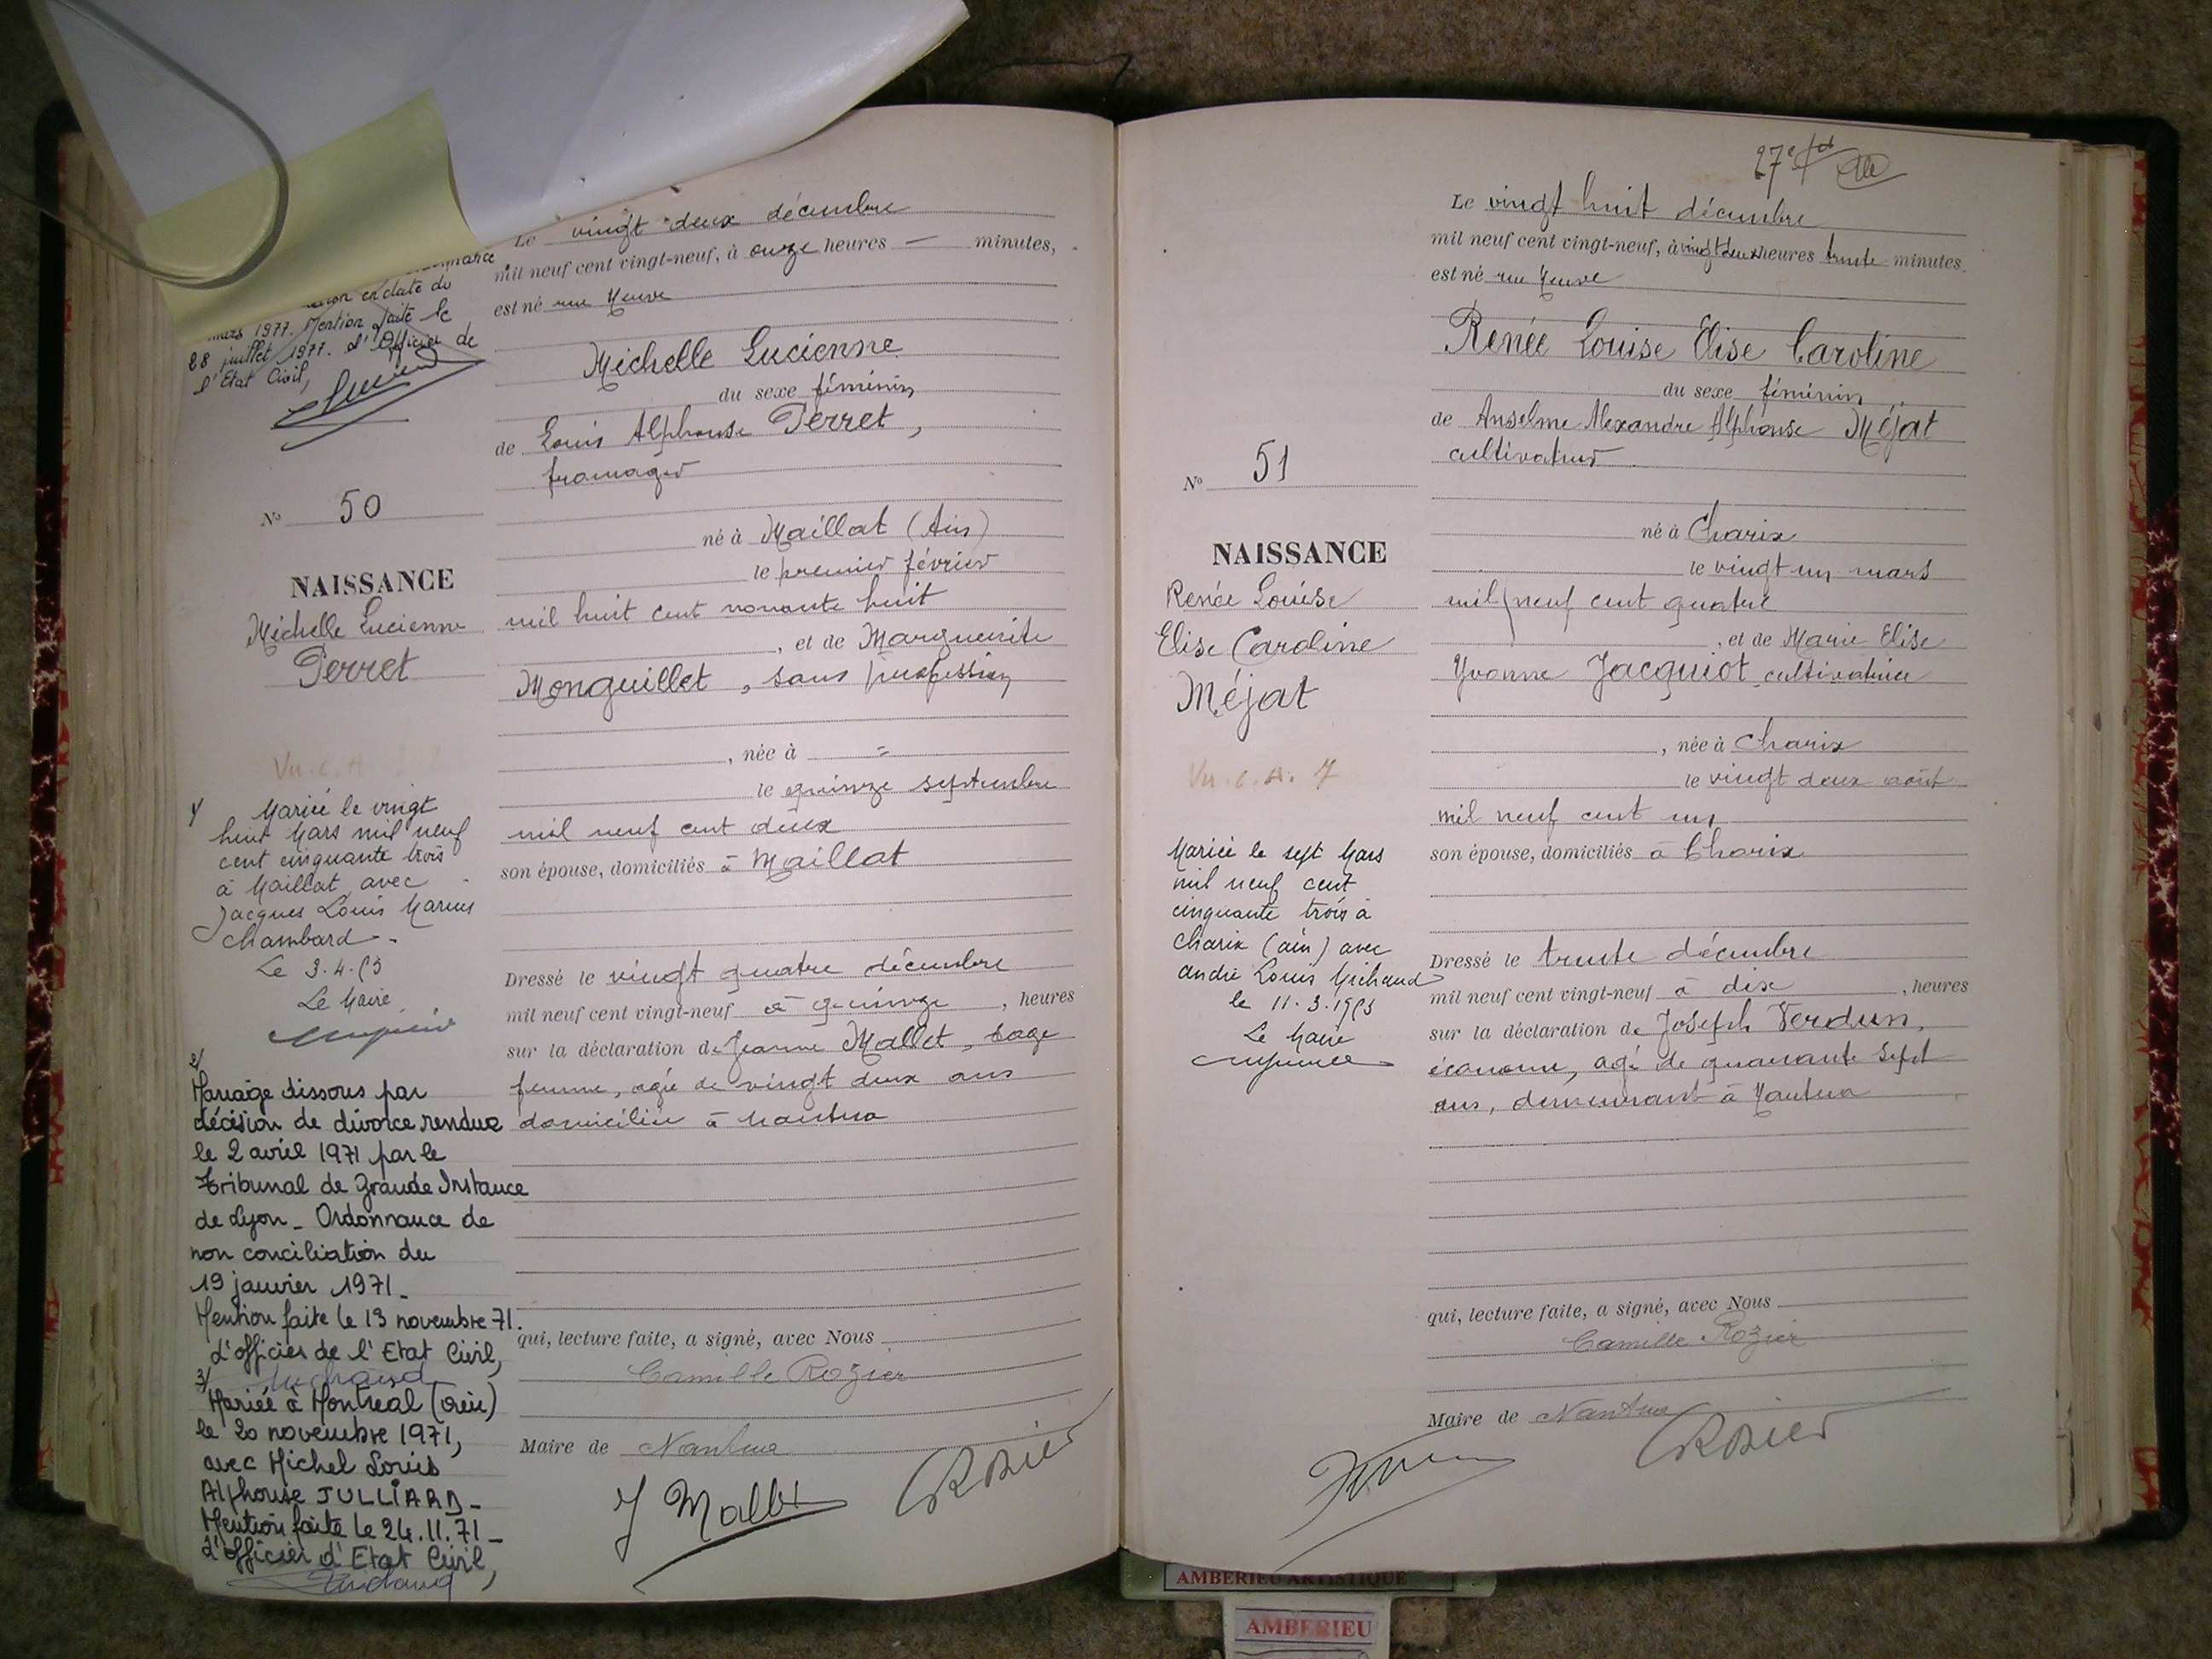 en date du
mars 1977. Mention faite le
28 juillet 1977. L'Officier de
l'Etat Civil,
N° 50
NAISSANCE
Michelle Lucienne
Perret
Vu. C. A.
1/ Mariée le vingt
huit Mars mil neuf
cent cinquante trois
à Maillat avec
Jacques Louis Marius
Chambard -
Le 3.4.53
Le Maire
2/
Mariage dissous par
décision de divorce rendue
le 2 avril 1971 par le
Tribunal de Grande Instance
de Lyon - Ordonnance de
non conciliation du
19 janvier 1971 -
Mention faite le 13 novembre 71.
L'officier de l'Etat Civil,
3/
Mariée à Montréal (Ain)
le 20 novembre 1971,
avec Michel Louis
Alphonse JULLIARD -
Mention faite le 24.11.71 -
L'officier d'Etat Civil,
Le vingt deux décembre
mil neuf cent vingt-neuf, à onze heures — minutes,
est né rue Neuve
Michelle Lucienne
du sexe féminin
de Louis Alphonse Perret,
fromager
né à Maillat (Ain)
le premier février
mil huit cent nonante huit
, et de Marguerite
Monguillet, sans profession
, née à =
le quinze septembre
mil neuf cent deux
son épouse, domiciliés à Maillat
Dressé le vingt quatre décembre
mil neuf cent vingt-neuf à quinze , heures
sur la déclaration de Jeanne Mallet, sage
femme, agée de vingt deux ans
domiciliée à Nantua
qui, lecture faite, a signé, avec Nous
Camille Rozier
Maire de Nantua
J Mallet CRozier
27e
N° 51
NAISSANCE
Renée Louise
Elise Caroline
Méjat
Vu. C. A. 7
Mariée le sept Mars
mil neuf cent
cinquante trois à
Charix (ain) avec
André Louis Michaud
le 11.3.1953
Le Maire
Le vingt huit décembre
mil neuf cent vingt-neuf, à vingt deux heures trente minutes,
est né rue Neuve
Renée Louise Elise Caroline
du sexe féminin
de Anselme Alexandre Alphonse Méjat
cultivateur
né à Charix
le vingt un mars
mil neuf cent quatre
, et de Marie Elise
Yvonne Jacquiot cultivatrice
, née à Charix
le vingt deux août
mil neuf cent un
son épouse, domiciliés à Charix
Dressé le trente décembre
mil neuf cent vingt-neuf à dix , heures
sur la déclaration de Joseph Verdun,
économe, agé de quarante sept
ans, demeurant à Nantua
qui, lecture faite, a signé, avec Nous
Camille Rozier
Maire de Nantua
CRozier
AMBERIEU ARTISTIQUE
AMBERIEU